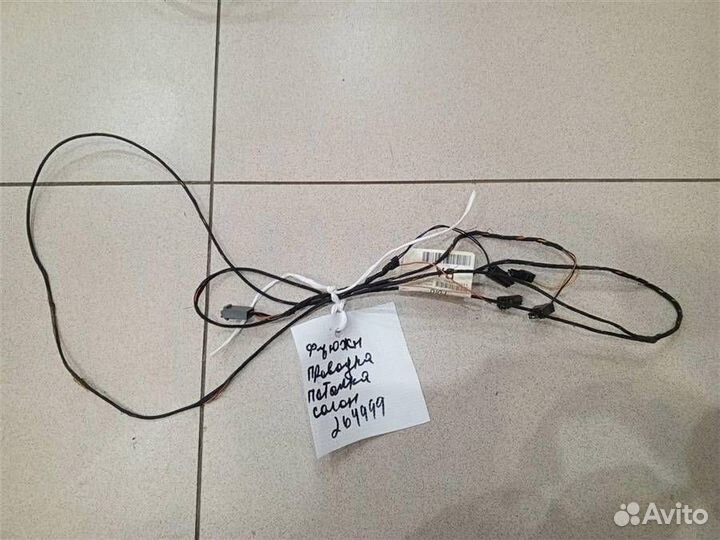 Фьюжн
проводка
потолка
салон
264999
FORD
Avito